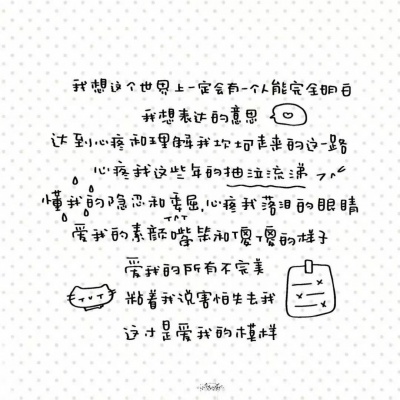 我想这个世界上一定会有一个人能完全明白
我想表达的意思
达到心疼和理解我坎坷走来的这一路
心疼我这些年的抽泣流涕
懂我的隐忍和委屈,心疼我落泪的眼睛
爱我的素颜嘴笨和傻傻的样子
爱我的所有不完美
粘着我说害怕失去我
这才是爱我的模样